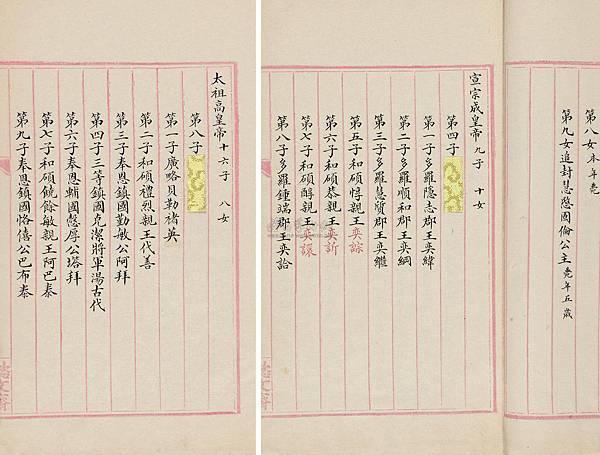 第八女
第九女追封慧愍固倫公主
宣宗成皇帝 九子 十女
第四子
第一子多羅隱志郡王奕緯
第二子多羅順和郡王奕綱
第三子多羅慧質郡王奕繼
第五子和碩惇親王奕誴
第六子和碩恭親王奕訢
第七子和碩醇親王奕譞
第八子多羅鍾端郡王奕詥
太祖高皇帝 十六子 八女
第八子
第一子廣略貝勒褚英
第二子和碩禮烈親王代善
第三子奉恩鎮國勤敏公阿拜
第四子三等鎮國克潔將軍湯古代
第六子奉恩輔國愨厚公塔拜
第七子和碩饒餘敏親王阿巴泰
第九子奉恩鎮國恪僖公巴布泰